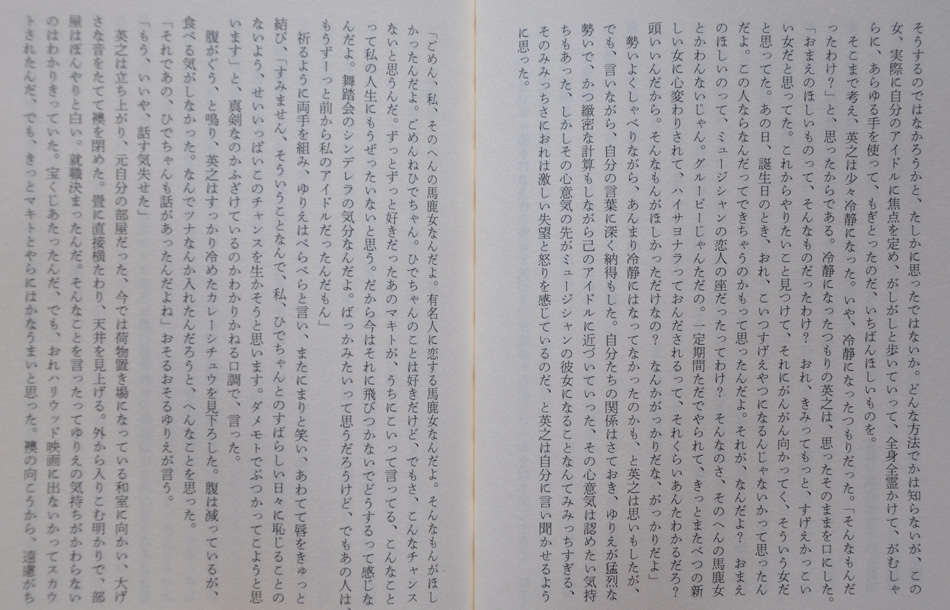 そうするのではなかろうかと、たしかに思ったではないか。どんな方法でかは知らないが、この
女、実際に自分のアイドルに焦点を定め、がしがしと歩いていって、全身全霊かけて、がむしゃ
らに、あらゆる手を使って、もぎとったのだ、いちばんほしいものを。
そこまで考え、英之は少々冷静になった。いや、冷静になったつもりだった。「そんなもんだ
ったわけ？」と、思ったからである。冷静になったつもりの英之は、思ったそのままを口にした。
「おまえのほしいものって、そんなものだったわけ？　おれ、きみってもっと、すげえかっこい
い女だと思ってた。これからやりたいこと見つけて、それにがんがん向かってく、そういう女だ
と思ってた。あの日、誕生日のとき、おれ、こいつすげえやつになるんじゃないかって思ったん
だよ。この人ならなんだってできちゃうのかもって思ったんだよ。それが、なんだよ？　おまえ
のほしいのって、ミュージシャンの恋人の座だったってわけ？　そんなのさ、そのへんの馬鹿女
とかわんないじゃん。グルーピーじゃんただの。一定期間ただでやられて、きっとまたべつの新
しい女に心変わりされて、ハイサヨナラっておんだされるって、それくらいあんたわかるだろ？
頭いいんだから。そんなもんがほしかっただけなの？　なんかがっかりだな、がっかりだよ」
勢いよくしゃべりながら、あんまり冷静にはなってなかったのかも、と英之は思いもしたが、
でも、言いながら、自分の言葉に深く納得もした。自分たちの関係はさておき、ゆりえが猛烈な
勢いで、かつ緻密な計算もしながら己のアイドルに近づいていった、その心意気は認めたい気持
ちもあった、しかしその心意気の先がミュージシャンの彼女になることなんてみみっちすぎる、
そのみみっちさにおれは激しい失望と怒りを感じているのだ、と英之は自分に言い聞かせるよう
に思った。
「ごめん、私、そのへんの馬鹿女なんだよ。有名人に恋する馬鹿女なんだよ。そんなもんがほし
かったんだよ。ごめんねひでちゃん。ひでちゃんのことは好きだけど、でもさ、こんなチャンス
ないと思うんだ。ずっとずっと好きだったあのマキトが、うちにこいって言ってる、こんなこと
って私の人生にもうぜったいないと思う。だから今はそれに飛びつかないでどうするって感じな
んだよ。舞踏会のシンデレラの気分なんだよ。ばっかみたいって思うだろうけど、でもあの人は、
もうずーっと前から私のアイドルだったんだもん」
祈るように両手を組み、ゆりえはべらべらと言い、またにまりと笑い、あわてて唇をきゅっと
結び、「すみません、そういうことなんで、私、ひでちゃんとのすばらしい日々に恥じることの
ないよう、せいいっぱいこのチャンスを生かそうと思います。ダメモトでぶつかってこようと思
います」と、真剣なのかふざけているのかわかりかねる口調で、言った。
腹がぐう、と鳴り、英之はすっかり冷めたカレーシチュウを見下ろした。腹は減っているが、
食べる気がしなかった。なんでツナなんか入れたんだろうと、へんなことを思った。
「それであの、ひでちゃんも話があったんだよね」おそるおそるゆりえが言う。
「もう、いいや、話す気失せた」
英之は立ち上がり、元自分の部屋だった、今では荷物置き場になっている和室に向かい、大げ
さな音をたてて襖を閉めた。畳に直接横たわり、天井を見上げる。外から入りこむ明かりで、部
屋はぼんやりと白い。就職決まったんだ。そんなことを言ったってゆりえの気持ちがかわらない
のはわかりきっていた。宝くじあたったんだ、でも、おれハリウッド映画に出ないかってスカウ
トされたんだ、でも、きっとマキトとやらにはかなうまいと思った。襖の向こうから、遠慮がち